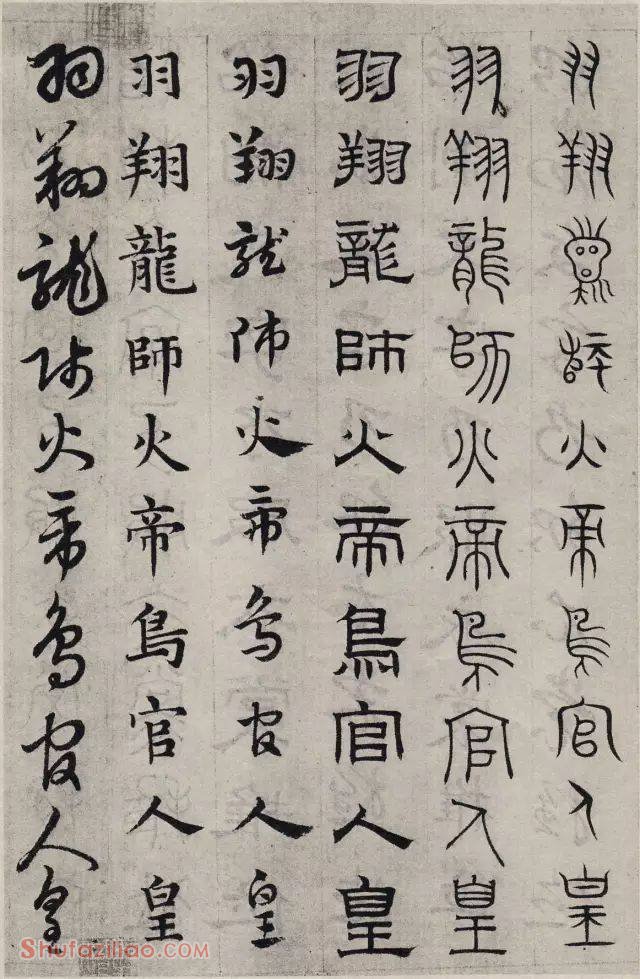 羽翔龍師火帝鳥官人皇
羽翔龍師火帝鳥官人皇
羽翔龍師火帝鳥官人皇
羽翔龍師火帝鳥官人皇
羽翔龍師火帝鳥官人皇
羽翔龍師火帝鳥官人皇
Shufaziliao.COM